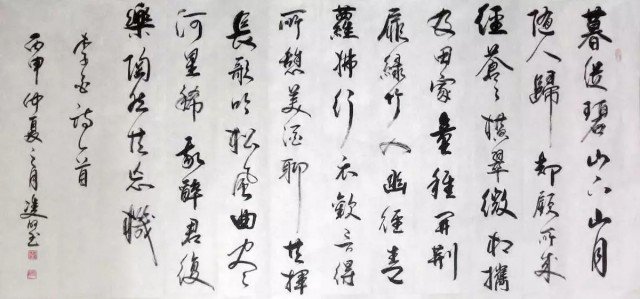 暮從碧山下山月
随人歸却顧所來
徑蒼々橫翠微相攜
及田家童稚開荊
扉綠竹入幽徑青
蘿拂行衣歡言得
所憩美酒聊共揮
長歌吟松風曲盡
河星稀我醉君復
樂陶然共忘機
李白詩一首
丙申仲夏之月書